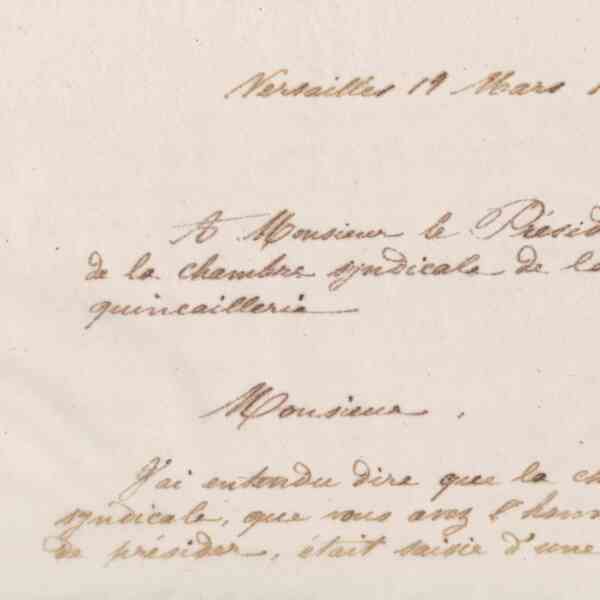 Versailles 19 Mars 1
A Monsieur le Présid
de la chambre syndicale de la
quincaillerie
Monsieur,
J'ai entendu dire que la ch
syndicale, que vous avez l'honn
de présider, était saisie d'une